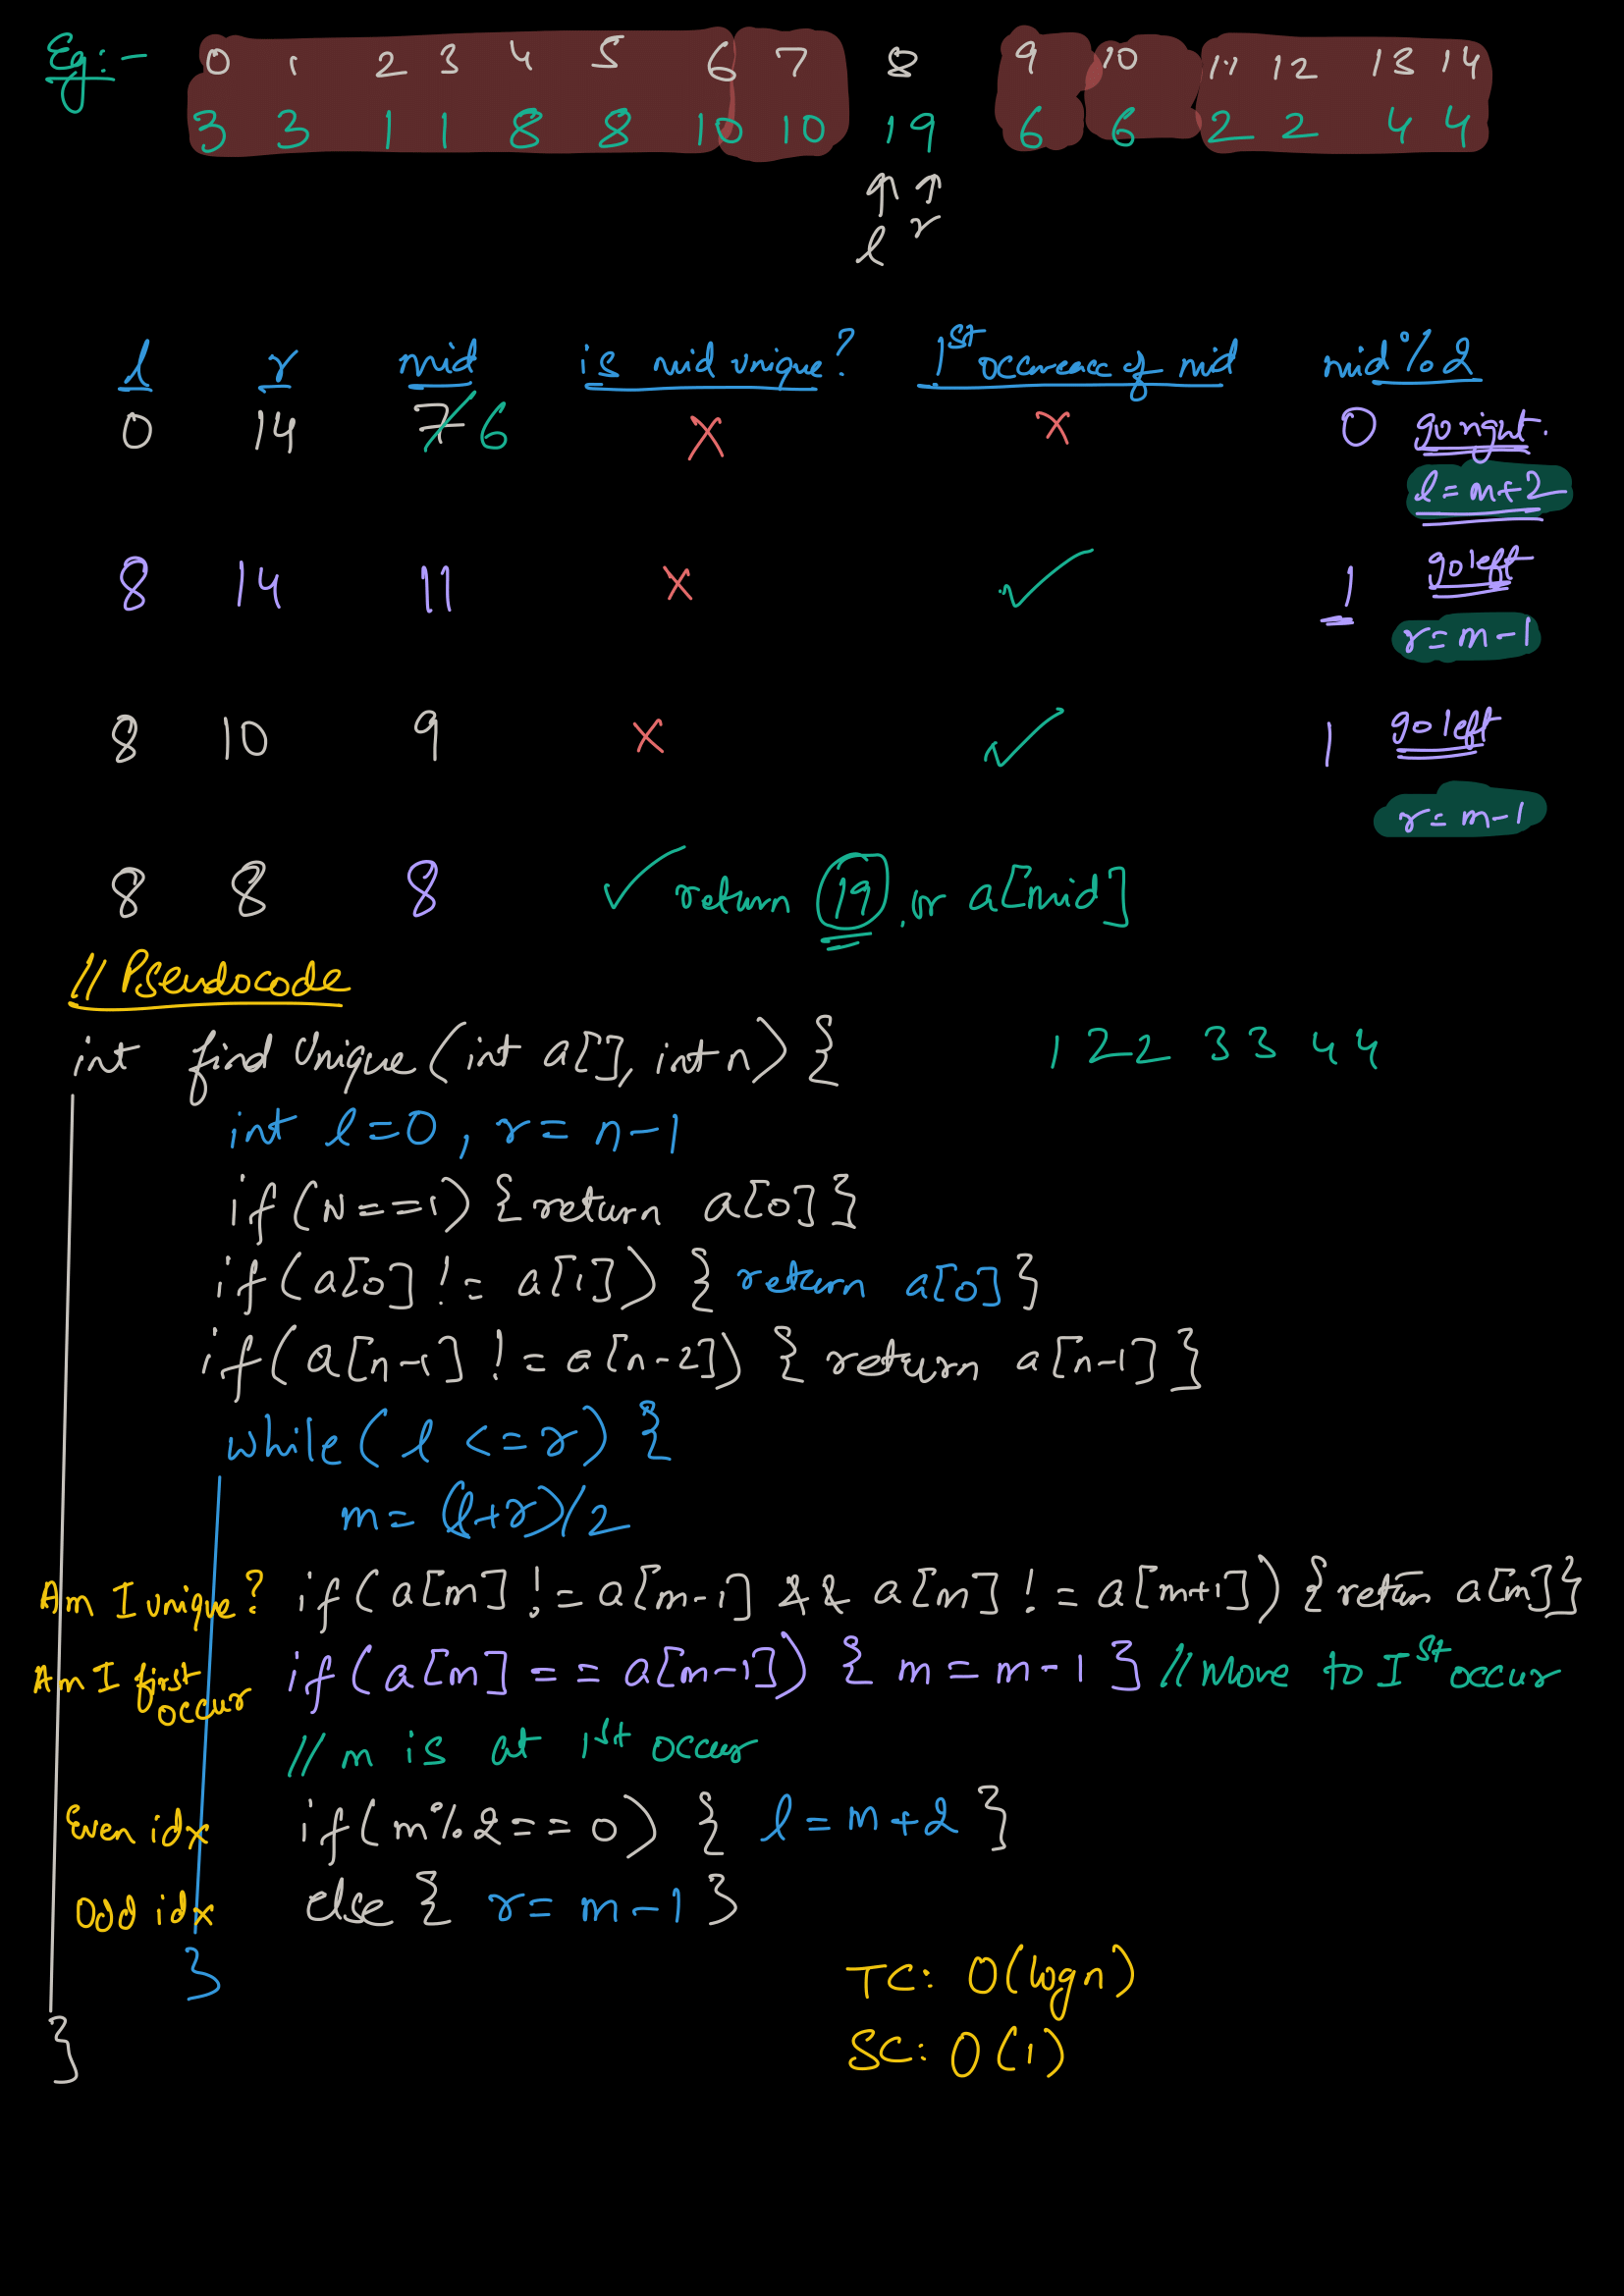 Eg:- 0 1 2 3 4 5 6 7 8 9 10 11 12 13 14
3 3 1 1 8 8 10 10 19 6 6 2 2 4 4
↑ ↑
l r
l r mid is mid unique? 1st occureace of mid mid%2
0 14 7 6 x x 0 go right.
l=m+2
8 14 11 x ✓ 1 go left
r=m-1
8 10 9 x ✓ 1 go left
r=m-1
8 8 8 ✓ return 19, or a[mid]
// Pseudocode
int find Unique (int a[], int n) { 1 2 2 3 3 4 4
int l=0, r=n-1
if (N==1) {return a[0]}
if (a[0] != a[1]) { return a[0]}
if (a[n-1] != a[n-2]) { return a[n-1] }
while ( l <=r) {
m= (l+r)/2
Am I unique? if (a[m] != a[m-1] && a[m] != a[m+1]) {return a[m]}
Am I first occur if (a[m] == a[m-1]) { m=m-1 } // Move to Ist occur
// m is at 1st occur
Even idx if(m%2==0) { l=m+2 }
Odd idx else { r=m-1 }
}
TC: O(logn)
}
SC: O(1)